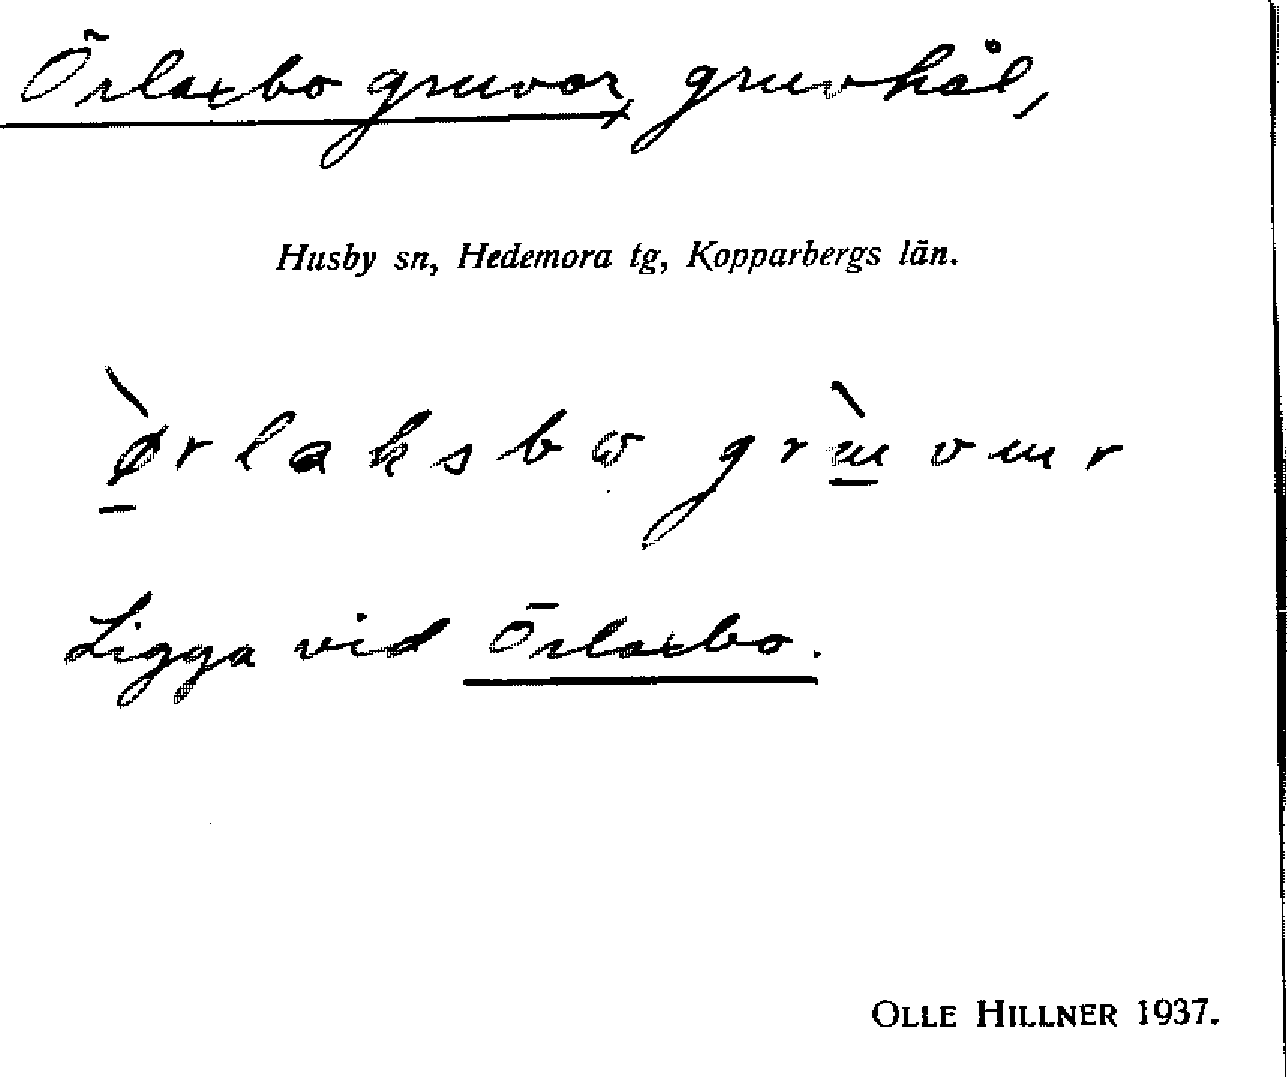 Örlaxbo gruvor, gruvhål,
Husby sn, Hedemora tg, Kopparbergs län.
ø̀rlaksbω grùvur
Ligga vid Örlaxbo.
OLLE HILLNER 1937.